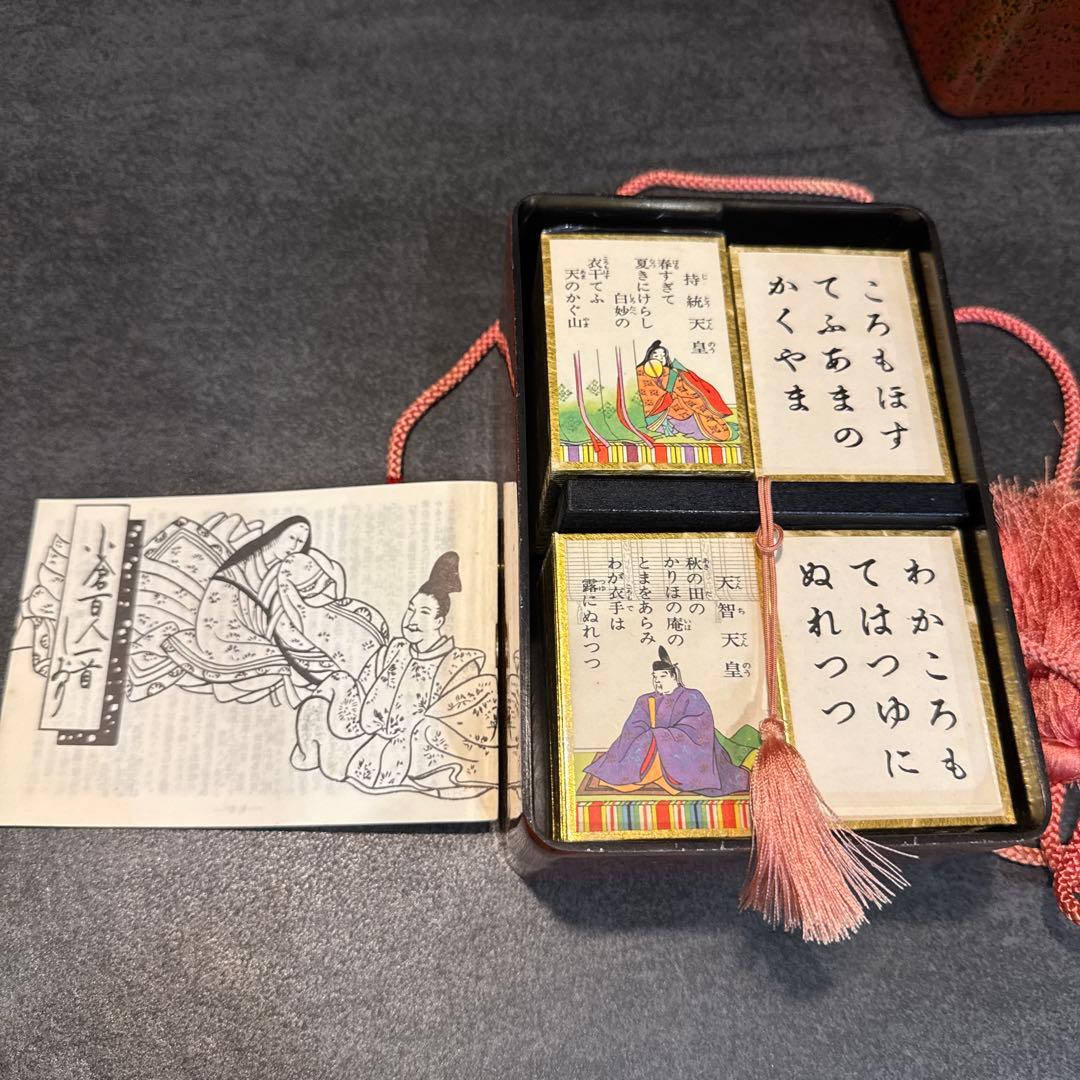 小倉百人一首
持統天皇
春すぎて
夏きにけらし
白妙の
衣干てふ
天のかぐ山
ころもほす
てふあまの
かくやま
天智天皇
秋の田の
かりほの庵の
とまをあらみ
わが衣手は
露にぬれつつ
わかころも
てはつゆに
ぬれつつ